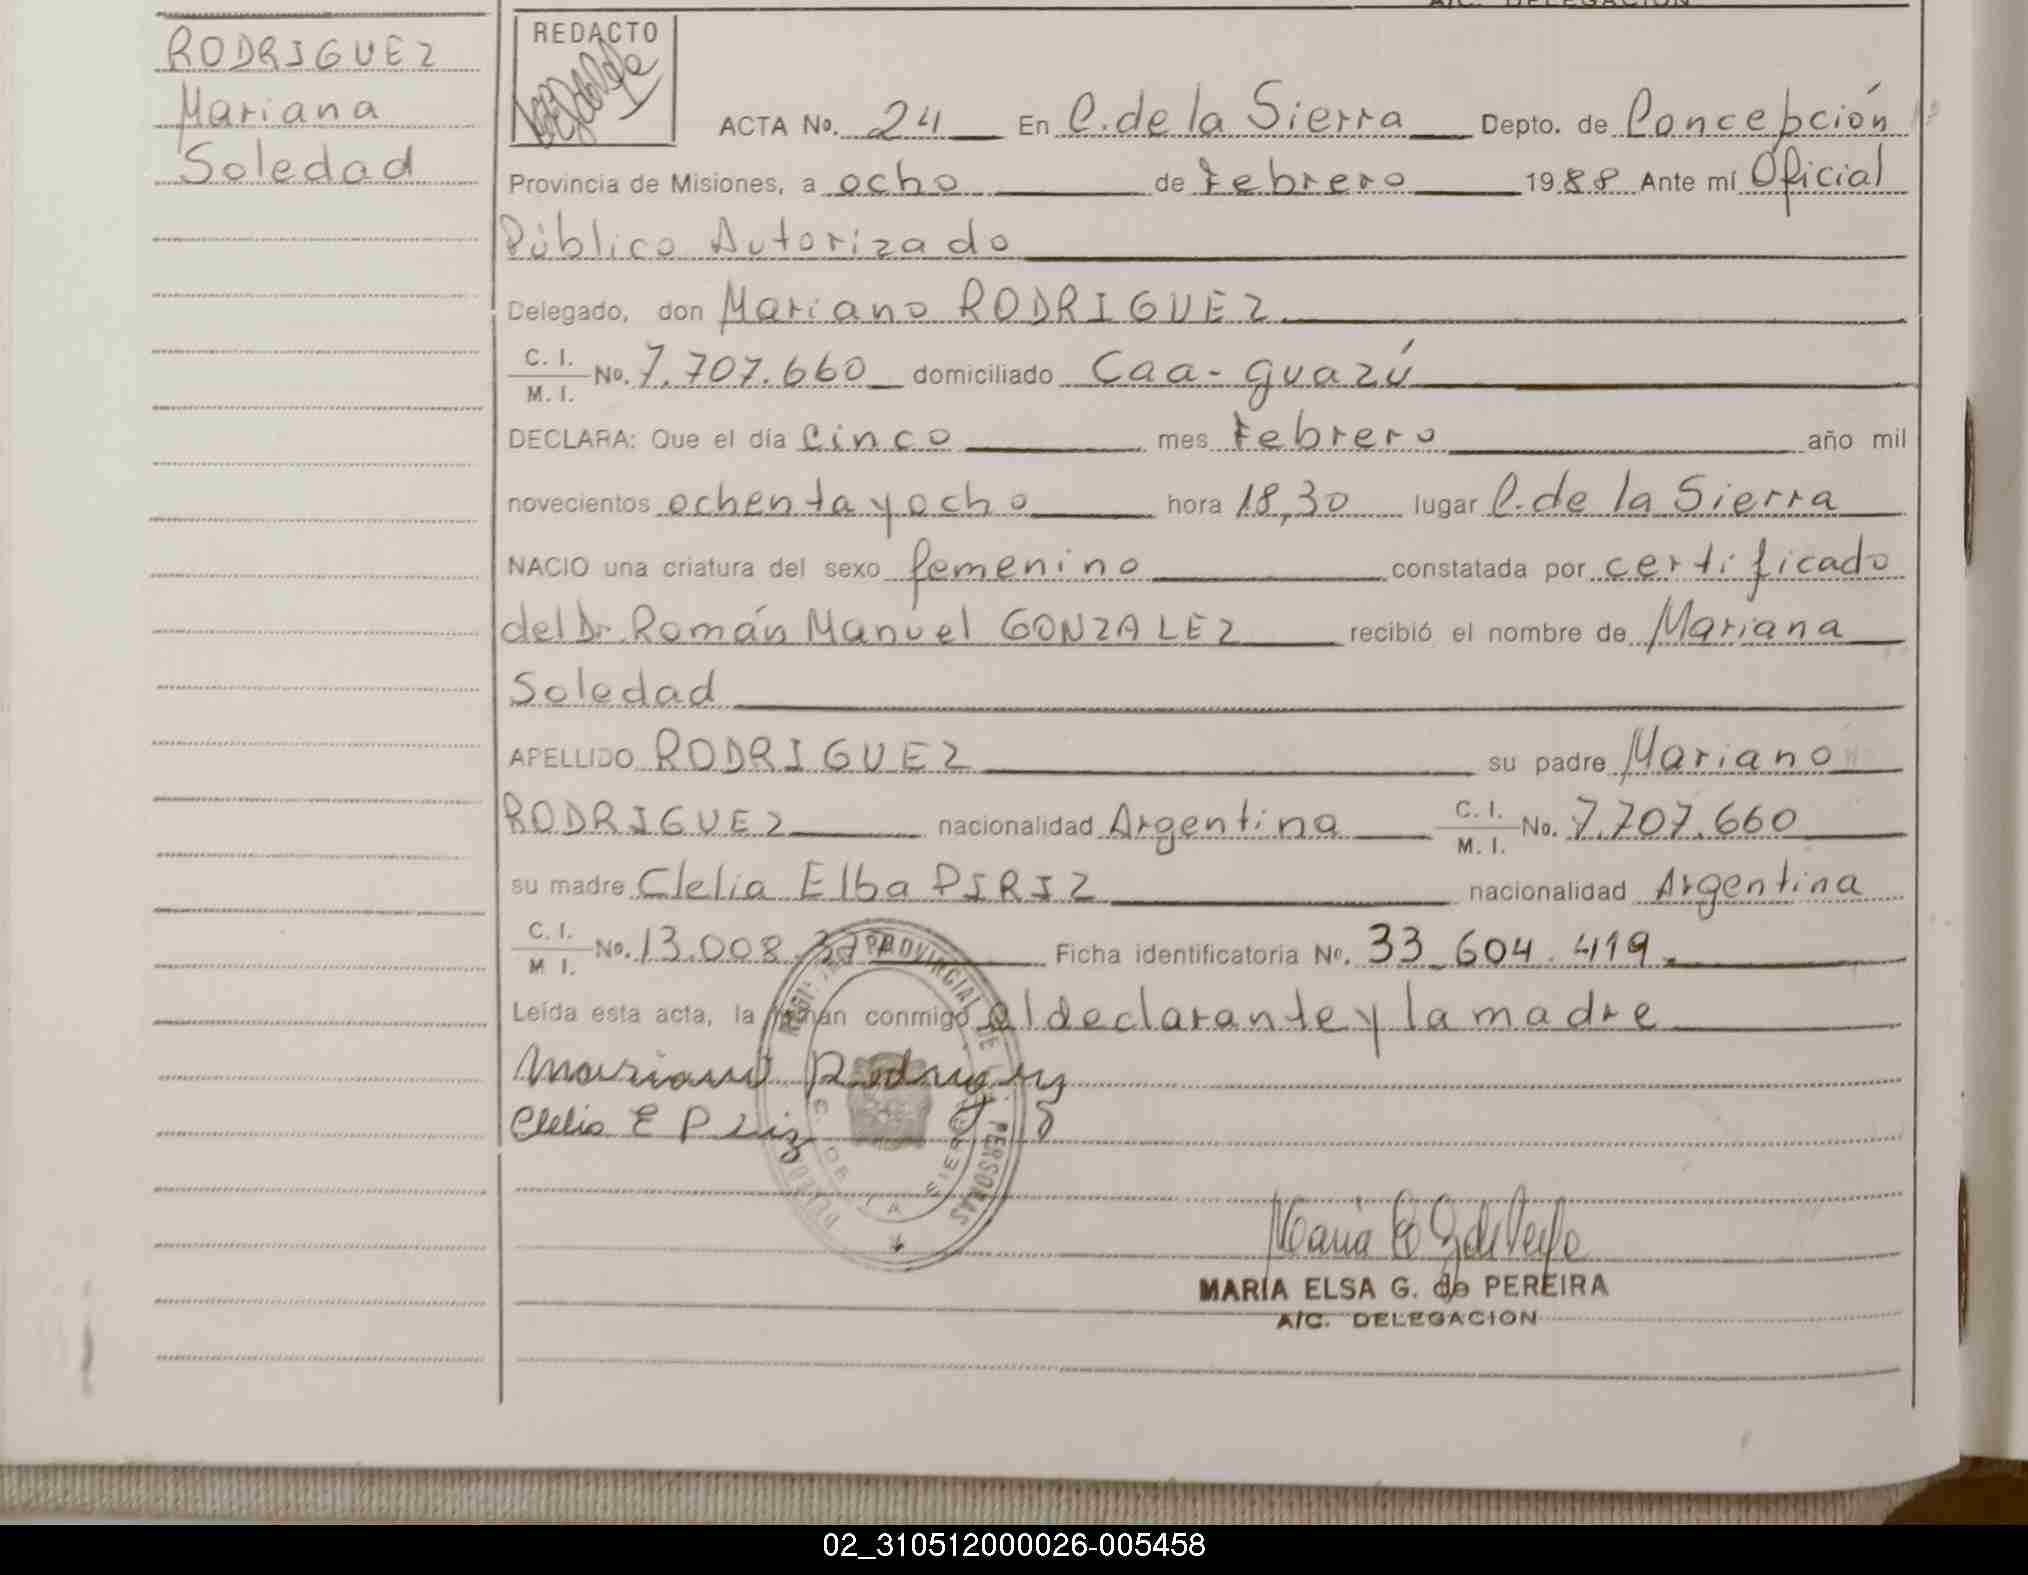 A/C. DELEGACION
RODRIGUEZ
Mariana
Soledad
REDACTO
ACTA No. 24 En C. de la Sierra Depto. de Concepción
Provincia de Misiones, a ocho de Febrero 1988 Ante mí Oficial
Público Autorizado
Delegado, don Mariano RODRIGUEZ
C. I.
M. I.
No. 7.707.660 domiciliado Caa-guazú
DECLARA: Que el día cinco mes Febrero año mil
novecientos ochenta y ocho hora 18,30 lugar C. de la Sierra
NACIO una criatura del sexo femenino constatada por certificado
del Dr. Román Manuel GONZALEZ recibió el nombre de Mariana
Soledad
APELLIDO RODRIGUEZ su padre Mariano
RODRIGUEZ nacionalidad Argentina C. I.
M. I.
No. 7.707.660
su madre Clelia Elba PIRIZ nacionalidad Argentina
C. I.
M I.
No. 13.008. Ficha identificatoria No. 33.604.419.
Leída esta acta, la firman conmigo el declarante y la madre
Mariano Rodriguez
Clelia E Piriz
PROVINCIAL DE
PERSONAS
C. DE LA SIERRA
MARIA ELSA G. de PEREIRA
A/C. DELEGACION
02_310512000026-005458